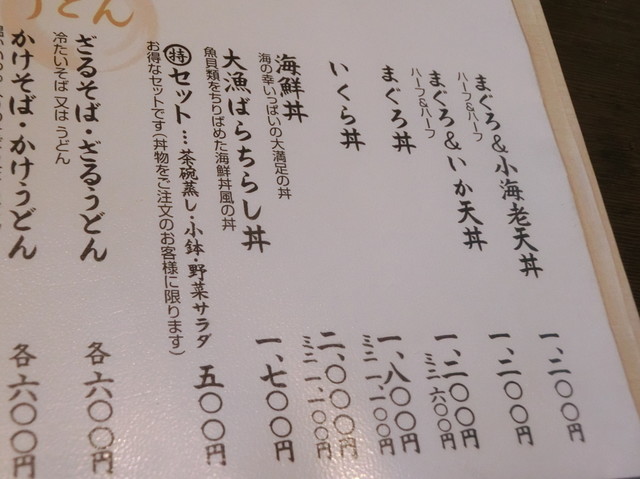 まぐろ&小海老天丼 一、二〇〇円
ハーフ&ハーフ
まぐろ&いか天丼 一、二〇〇円
ハーフ&ハーフ
まぐろ丼 一、二〇〇円
ミニ 六〇〇円
いくら丼 一、八〇〇円
ミニ 一、一〇〇円
海鮮丼 二、〇〇〇円
海の幸いっぱいの大満足の丼 ミニ 一、一〇〇円
大漁ばらちらし丼 一、七〇〇円
魚貝類をちりばめた海鮮丼風の丼
㊕セット…茶碗蒸し・小鉢・野菜サラダ 五〇〇円
お得なセットです(丼物をご注文のお客様に限ります)
うどん
ざるそば・ざるうどん 各六〇〇円
冷たいそば又はうどん
かけそば・かけうどん 各六〇〇円